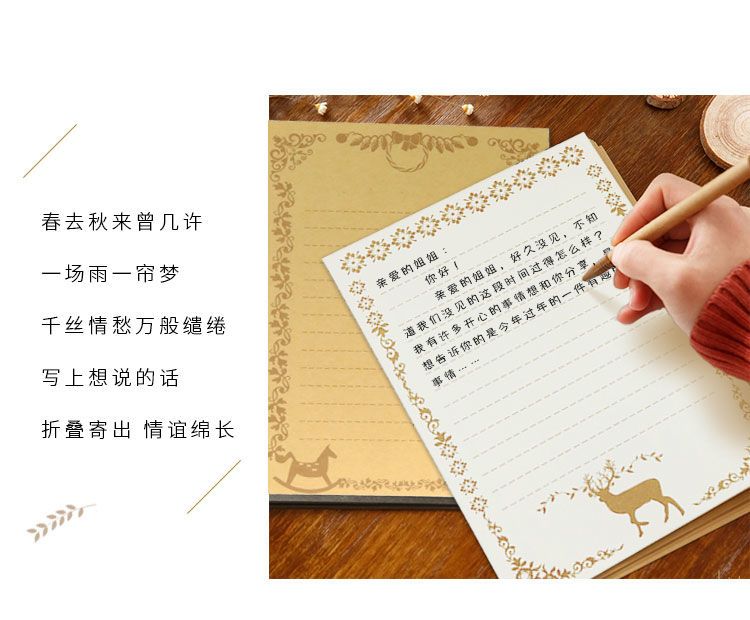 春去秋来曾几许
一场雨一帘梦
千丝情愁万般缱绻
写上想说的话
折叠寄出 情谊绵长
亲爱的姐姐:
你好!
亲爱的姐姐,好久没见,不知
道我们没见的这段时间过得怎么样?
我有许多开心的事情想和你分享,最
想告诉你的是今年过年的一件有趣
事情……